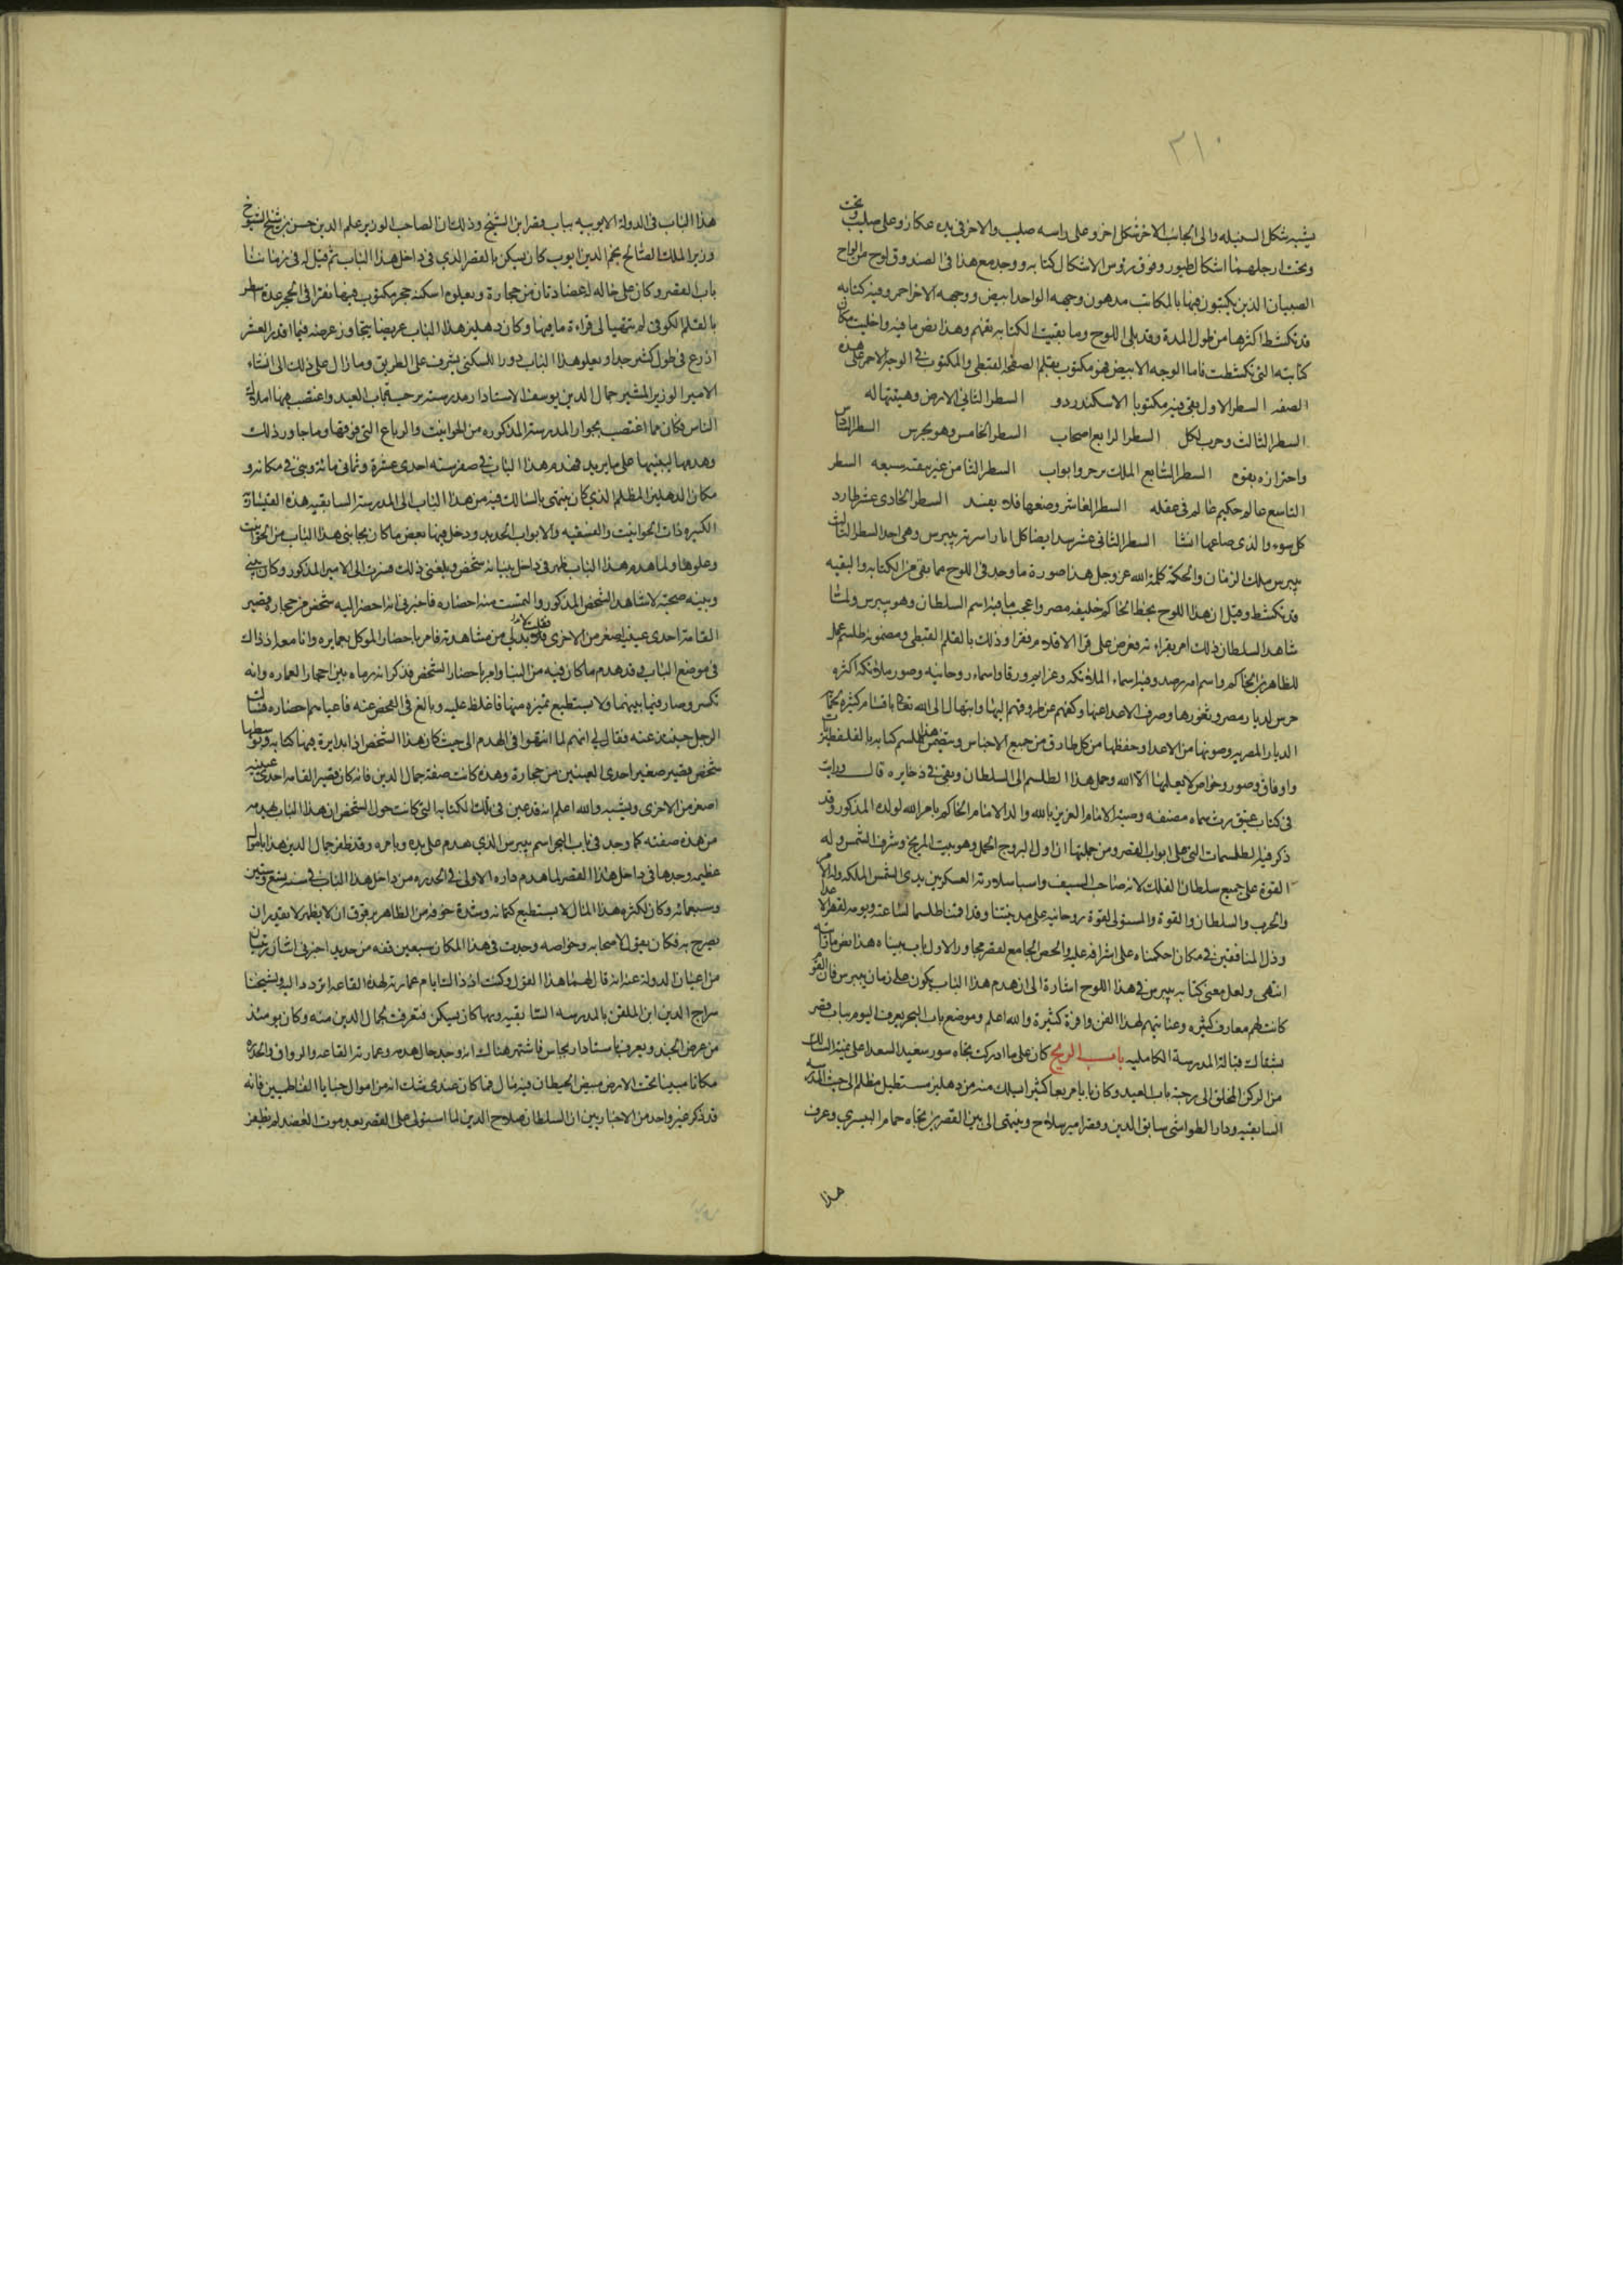 ٣١٠
يشبه شكل السنبله والى الجانب الاخر شكل اخر وعلى راسه صليب والاخر فى يده عكاز وعلى صليب وتحت
وتحت ارجلهما اشكال طيور وفوق رؤس الاشكال كتابه ووجد مع هذا فى الصندوق لوح من الواح
الصبيان الذين يكتبون فيها بالمكاتب مدهون وجهه الواحد ابيض ووجهه الاخر احمر وفيه كتابه
قد تكشط اكثرها من طول المدة وقد بلى اللوح وما بقيت الكتابه تفهم وهذا نص ما فيه واخليت مكان
كتابته التى تكشطت فاما الوجه الابيض فهو مكتوب بقلم الصفحه القبطى والمكتوب فى الوجه الاحمر على هذه
الصفه السطر الاول بقى فيه مكتوبا الاسكندر دو السطر الثانى الارض وهبتها له
السطر الثالث وحرب لكل السطر الرابع اصحاب السطر الخامس وهو يحرس السطر السادس
واحترازه بقوه السطر السابع الملك مرحر وابواب السطر الثامن غير بيته سبعه السطر
التاسع عالم حكيم ظالم فى عقله السطر العاشر وضعها فلا يفسد السطر الحادى عشر طارد
كل سوء والذى صاعها انشا السطر الثانى عشر سد ايضا كل اما راسه تد بيبرس وهى احد السطر الثالث
بيبرس ملك الزمان والحكمة كلمة الله عز وجل هذا صورة ما وجد فى اللوح مما بقى من الكتابه والبقيه
قد تكشط وقيل ان هذا اللوح بخط الحاكم خليفه مصر واعجب ما فيه اسم السلطان وهو بيبرس ولما
شاهد السلطان ذلك امر بقراءته فعرض على قرا الاقلام فقرا وذلك بالقلم القبطى ومضمونه طلسم عمل
للظاهر بن الحاكم واسم امه رصد وفيه اسماء الملائكه وعزايم ورقا واسماء روحانيه وصور ملائكه اكثره
حرس لديار مصر وثغورها وصرف الاعدا عنها وكفهم عن طروقهم اليها وابتهال الى الله تعالى باقسام كثيرة لحمايه
الديار المصريه وصونها من الاعدا وحفظها من كل طارق من جميع الاجناس وتضمن هذا الطلسم كتابه بالقلفطيريات
واوفاق وصور وخواص لا يعلمها الا الله وحمل هذا الطلسم الى السلطان وبقى فى ذخايره قال ورايت
فى كتاب عتيق رث سماه مصنفه وصية الامام العزيز بالله والد الامام الحاكم بامر الله لولده المذكور وقد
ذكر فيه الطلسمات التى على ابواب القصر ومن جملتها ان اول البروج الحمل وهو بيت المريخ وشرف الشمس وله
القوة على جميع سلطان الفلك لانه صاحب السيف واسباسلارية العسكر بين يدى الشمس الملكه وله الامر
والحرب والسلطان والقوة والمستولى لقوة روحانيه على مدينتنا وقد اقمنا طلسما لساعته ويومه لقهر الاعدا
وذل المنافقين فى مكان احكمناه على اشرافه عليه والحصن الجامع لقصر مجاور الاول باب بنيناه هذا نص ما رايته
انتهى ولعل معنى كتابه بيبرس فى هذا اللوح اشارة الى ان هدم هذا الباب يكون على زمان بيبرس فان القوم
كانت لهم معارف كثيره وعنايتهم بهذا الفن وافرة كثيرة والله اعلم وموضع باب البحر يعرف اليوم بباب قصر
بشتاك قبالة المدرسة الكامليه باب الريح كان على ما ادركته تجاه سور سعيد السعدا على يمنة السالك
من الركن المخلق الى رحبة باب العيد وكان بابا مربعا كثيرا يسلك منه من دهليز مستطيل مظلم الى حيث المدرسه
السابقيه ودار الطواشى سابق الدين وقصر امير سلاح وينتهى الى بين القصرين تجاه حمام البيسري وعرف
هذا
هذا الباب فى الدولة الايوبيه بباب قصر ابن الشيخ وذلك ان الصاحب الوزير علم الدين حسن بن شيخ الشيوخ
وزير الملك الصالح نجم الدين ايوب كان يسكن بالقصر الذي فى داخل هذا الباب ثم قيل له فى زماننا
باب القصر وكان على حاله له عضادتان من حجارة ويعلوه اسكفة حجر مكتوب فيها نقرا فى الحجر عدة اسطر
بالقلم الكوفى لم يتهيا لى قراءة ما فيها وكان دهليز هذا الباب عريضا يتجاوز عرضه فيما اقدر العشر
اذرع فى طول كثير جدا ويعلو هذا الباب دور للسكنى تشرف على الطريق وما زال على ذلك الى انشاء
الامير الوزير المشير جمال الدين يوسف الاستادار مدرسته برحبة باب العيد واغتصب لها املاك
الناس فكان مما اغتصب بجوار المدرسة المذكوره من الحوانيت والرباع التى فوقها وما جاور ذلك
وهدمها ليبنيها على ما يريد فهدم هذا الباب فى صفر سنه احدى عشرة وثمانى مائة وبنى فى مكانه و
مكان الدهليز المظلم الذي كان ينتهى بالسالك فيه من هذا الباب الى المدرسة السابقيه هذه القيسارة
الكبيره ذات الحوانيت والسقيفه والابواب الحديد ودخل فيها بعض ما كان بجانبى هذا الباب من الحوانيت
وعلوها ولما هدم هذا الباب ظهر فى داخل بنيانه شخص وبلغنى ذلك فسرت الى الامير المذكور وكان بينى
وبينه صحبة لاشاهد الشخص المذكور والتمست منه احضاره فاخبرنى انه احضر اليه شخص من حجارة قصير
القامة احدى عينيه اصغر من الاخرى فقلت لابد لى من مشاهدته فامر باحضاره الموكل بعمايره وانا معه اذ ذاك
فى موضع الباب وقد هدم ما كان فيه من البنا وامره باحضار الشخص فذكر انه رماه بين احجار العماره وانه
تكسر وصار فيما بينهما ولا يستطيع تميزه منها فاغلظ عليه وبالغ فى الفحص عنه فاعياهم احضاره فسالت
الرجل حينئذ عنه فقال لي انهم لما انتهوا فى الهدم الى حيث كان هذا الشخص اذا بدايرة فيها كتابه وبوسطها
شخص قصير صغير احدى العينين من حجارة وهذه كانت صفة جمال الدين فانه كان قصير القامه احدى عينيه
اصغر من الاخرى ويشبه والله اعلم انه قد عين فى تلك الكتابه التى كانت حول الشخص ان هذا الباب يهدمه
من هذه صفته كما وجد فى باب البحر اسم بيبرس الذي هدم على يده وبامره وقد ظفر جمال الدين هذا باموال
عظيمه وجدها فى داخل هذا القصر لما هدم داره الاولى فى الحدره من داخل هذا الباب فى سنه ستع وستين
وسبعمائه وكان لكثره هذا المال لا يستطيع كتمانه وشدة خوفه من الظاهر برقوق ان لا يظهر لا يقدر ان
يصرح به فكان يقول لاصحابه وخواصه وجدت فى هذا المكان سبعين قفه من حديد اخبرنى اثنان رئيسان
من اعيان الدولة عنه انه قال لهما هذا القول وكنت اذ ذاك ايام عمارته لهذه القاعه اتردد اليه وشيخنا
سراج الدين ابن الملقن بالمدرسه السابقيه وبها كان يسكن فتعرفت بجمال الدين منه وكان يومئذ
من عرض الجند ويعرف باستادار بجاس فاشتهر هناك انه وجد حال هدمه وعمارته القاعه والرواق بالحدره
مكانا مبنيا تحت الارض مبيض الحيطان فيه مال فما كان عندى شك انه من اموال خبايا الفاطميين فانه
قد ذكر غير واحد من الاخباريين ان السلطان صلاح الدين لما استولى على القصر بعد موت العاضد لم يظفر